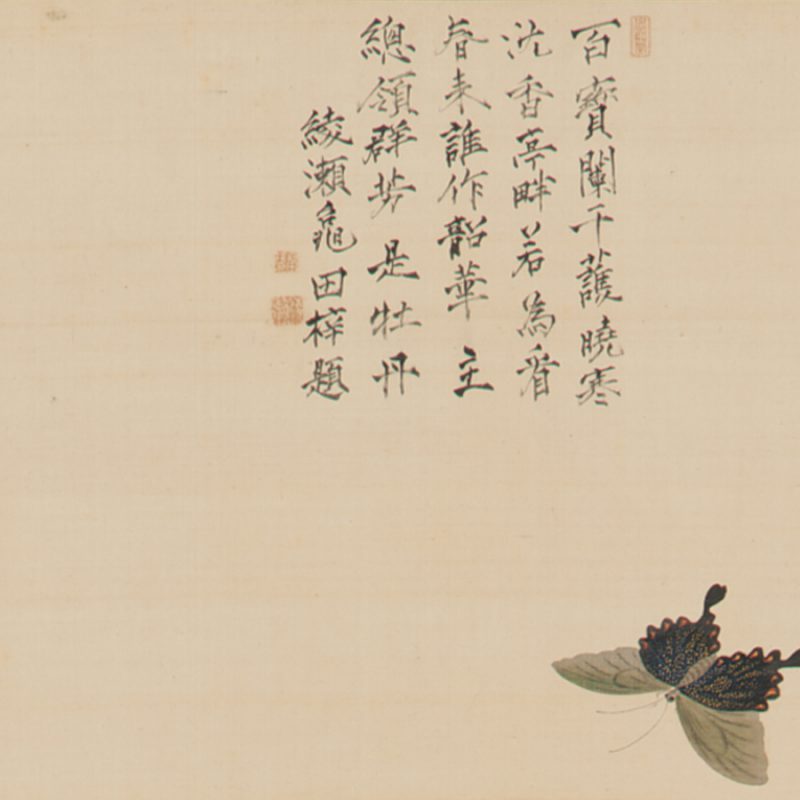 百寳闌干護曉寒
沈香亭畔若為看
春来誰作韶華主
總領群芳是牡丹
綾瀬龜田梓題